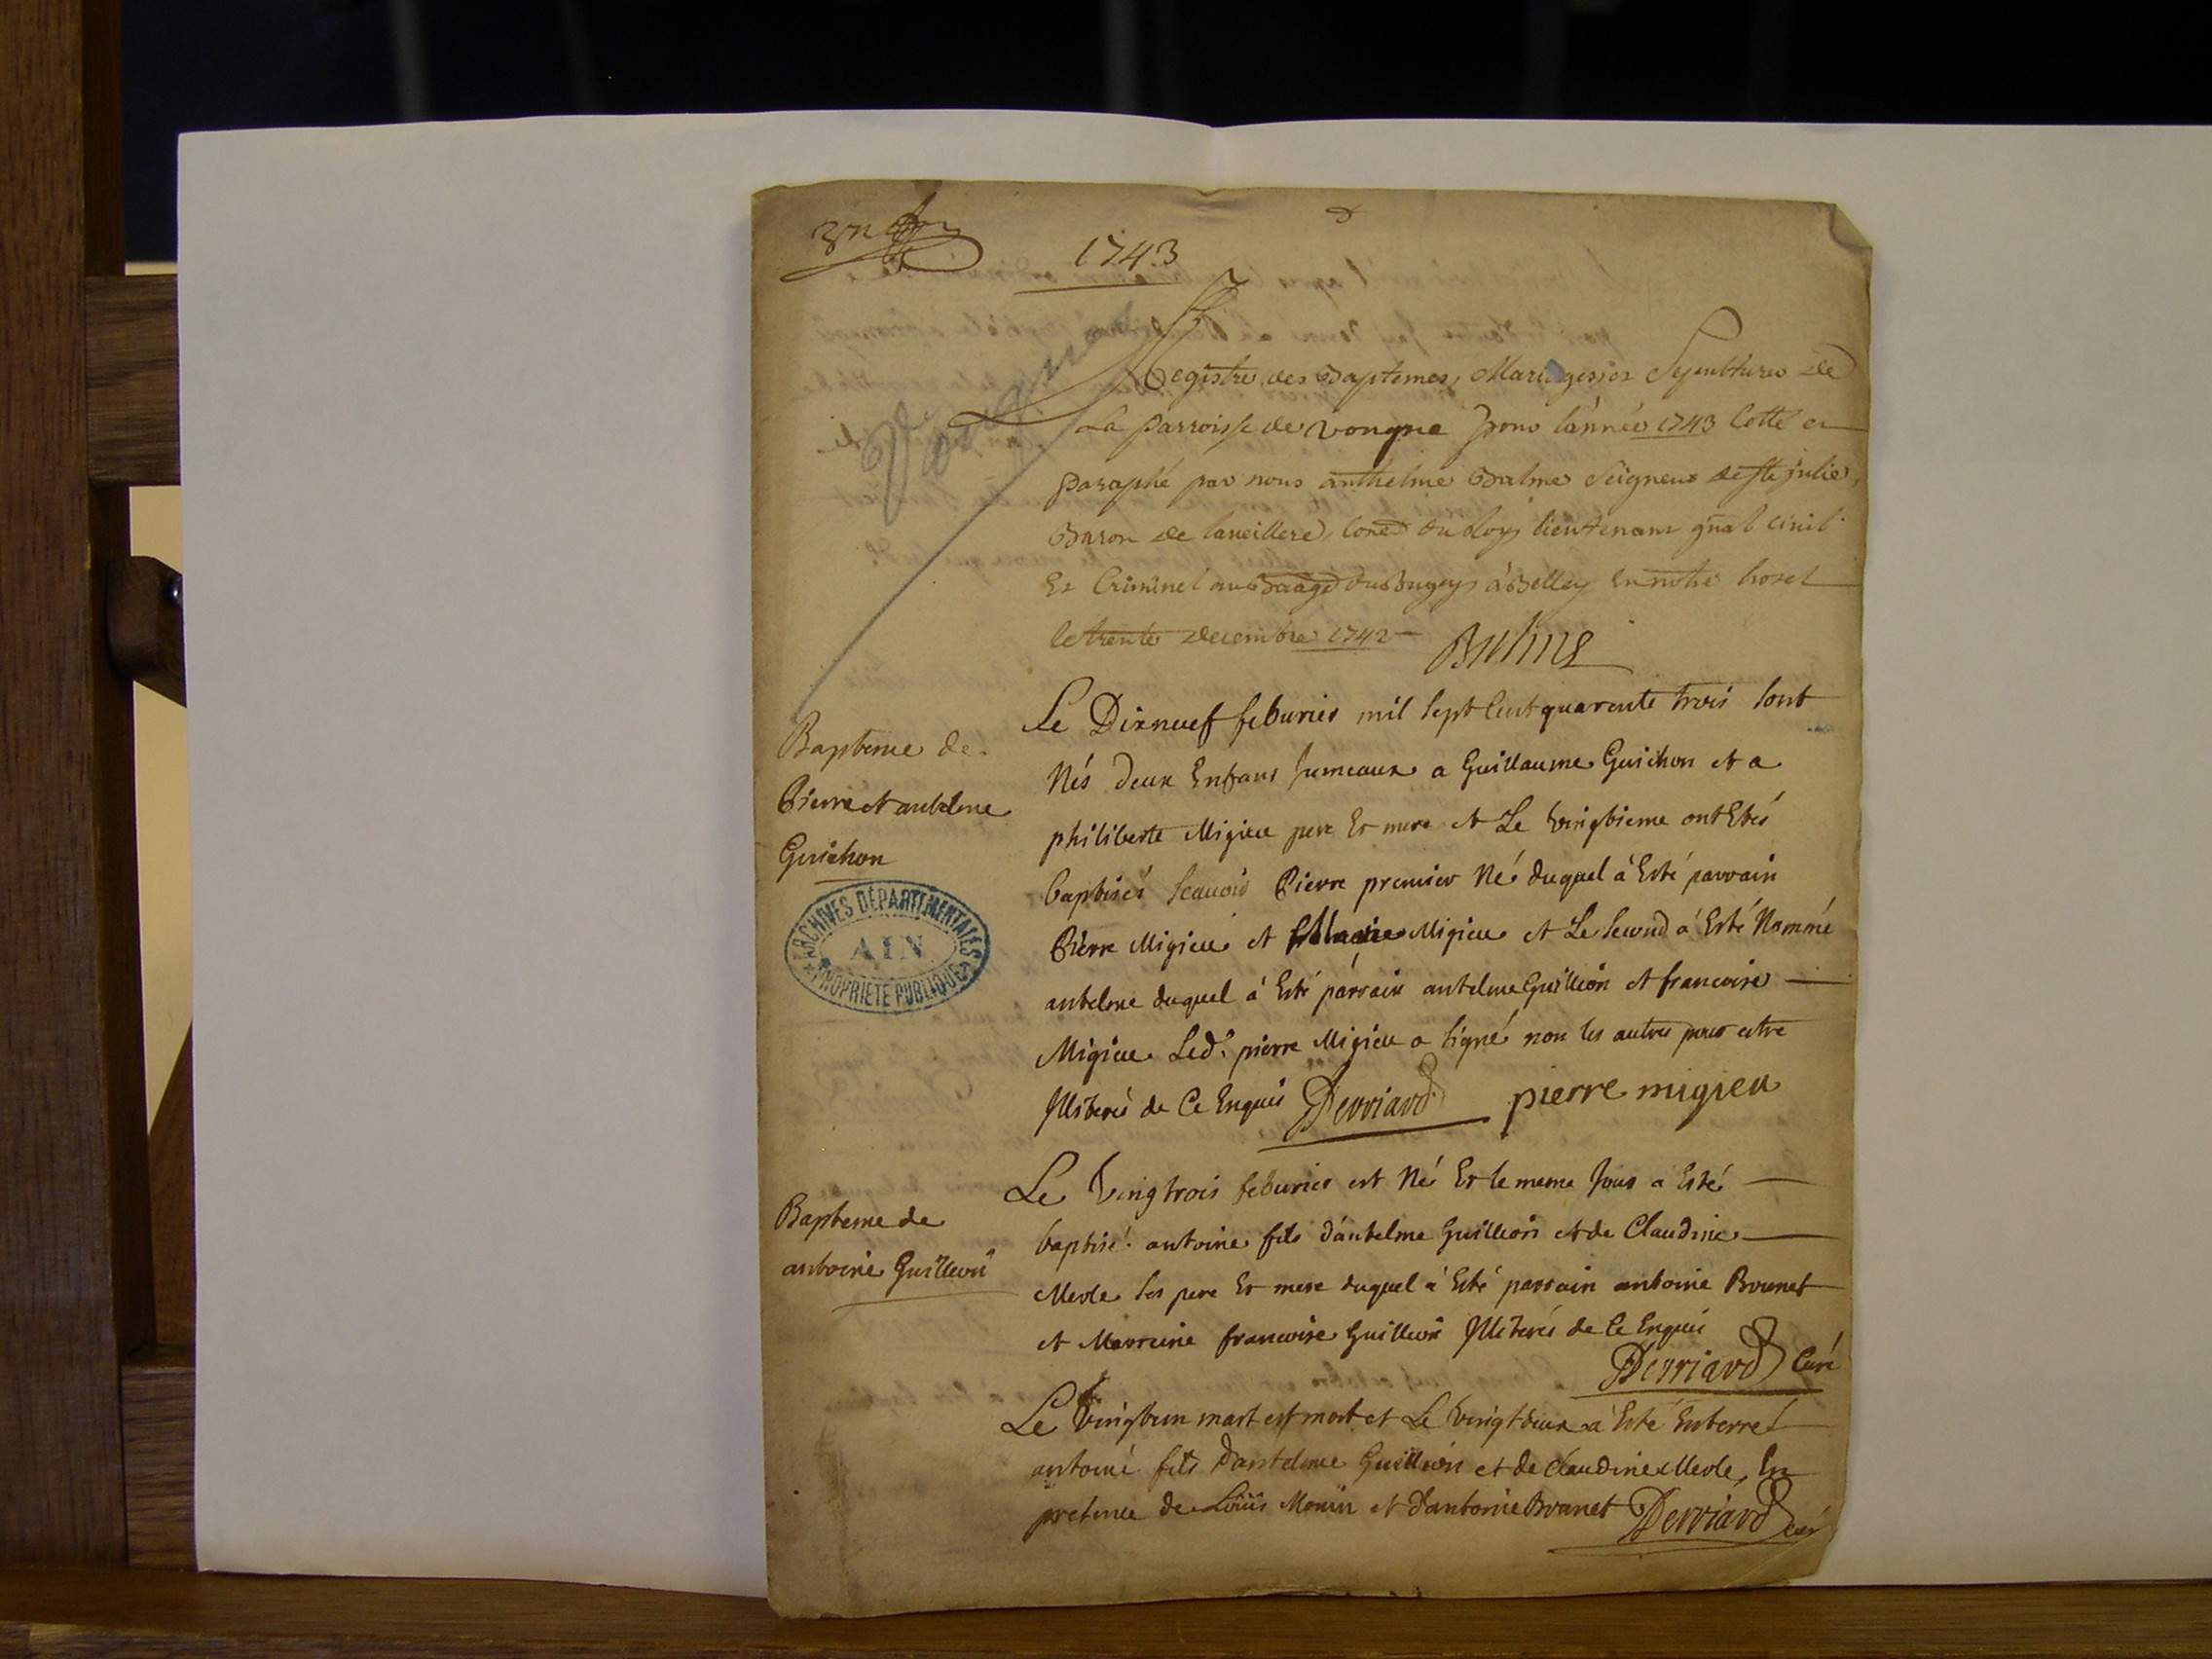 1743
Registre des Baptemes, Mariages et Sepultures de
La parroisse de vongne pour l'année 1743 Cotté et
Paraphé par nous anthelme Balme Seigneur de ste julie,
Baron de Conser du Roy, lieutenant gnal civil
Et Criminel au Baage du Bugey à Belley En notre hotel
le trente decembre 1742
Balme
Le Dixneuf feburier mil sept Cent quarente trois sont
Nés deux Enfans Jumeaux a Guillaume Guichon et a
philiberte Migieu pere Et mere et Le vingtieme ont Etés
baptisés scauoir Pierre premier Né duquel à Esté parrain
Pierre Migieu et Migieu et Le second à Esté Nommé
antelme duquel à Esté parrain antelme Guillion et francoise
Migieu Led. pierre Migieu a signé non les autres pour estre
Illiterés de Ce Enquis Derriard pierre migieu
Bapteme de
Pierre et antelme
Guichon
ARCHIVES DÉPARTEMENTALES
AIN
PROPRIÉTÉ PUBLIQUE
Le Vingtrois feburier est Né Et le meme Jour a Esté
baptisé antoine fils d'antelme Guillion et de Claudine
Merle ses pere Et mere duquel à Esté parrain antoine Brunet
et Marreine francoise Guillion Illiterés de Ce Enquis
Derriard Curé
Bapteme de
antoine Guillion
Le Vingtun mart est mort et Le vingtdeux a Esté Enterré
antoine fils D'antelme Guillion et de Claudine Merle, En
presence de Louïs Monin et d'antoine Brunet Derriard curé